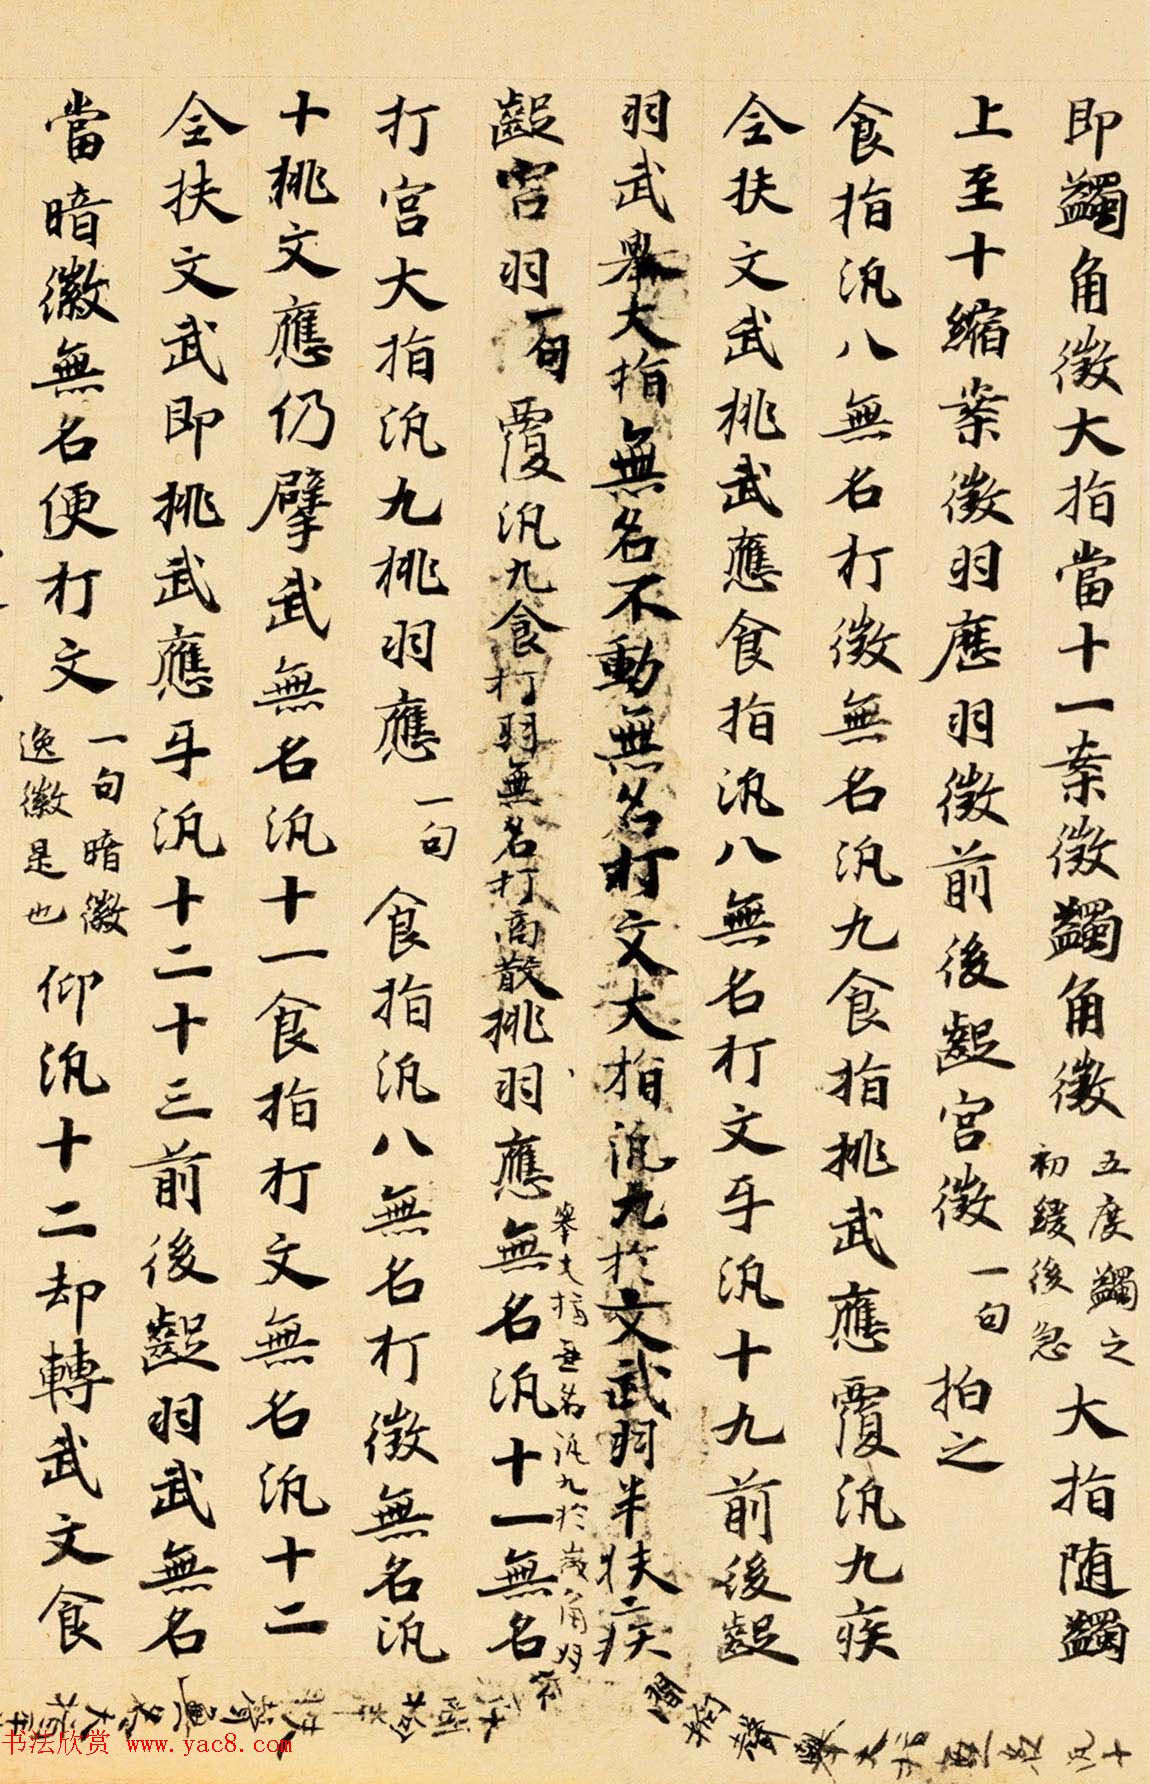 即蠲角徵大指當十一案徵蠲角徵五度蠲之初緩後急大指随蠲
上至十縮案徵羽應羽徵前後齪宮徵一句拍之
食指汎八無名打徵無名汎九食指挑武應覆汎九疾
全扶文武挑武應食指汎八無名打文牙汎十九前後齪
羽武舉大指無名不動無名打文大指汎九於文武羽半扶疾
齪宮羽一句覆汎九食打羽無名打商散挑羽應無名汎十一無名
舉大指無名汎九於 角
打宮大指汎九挑羽應一句食指汎八無名打徵無名汎
十挑文應仍擘武無名汎十一食指打文無名汎十二
全扶文武即挑武應牙汎十二十三前後齪羽武無名
當暗徽無名便打文一句暗徽逸徽是也仰汎十二却轉武文食
书法欣赏 www.yac8.com